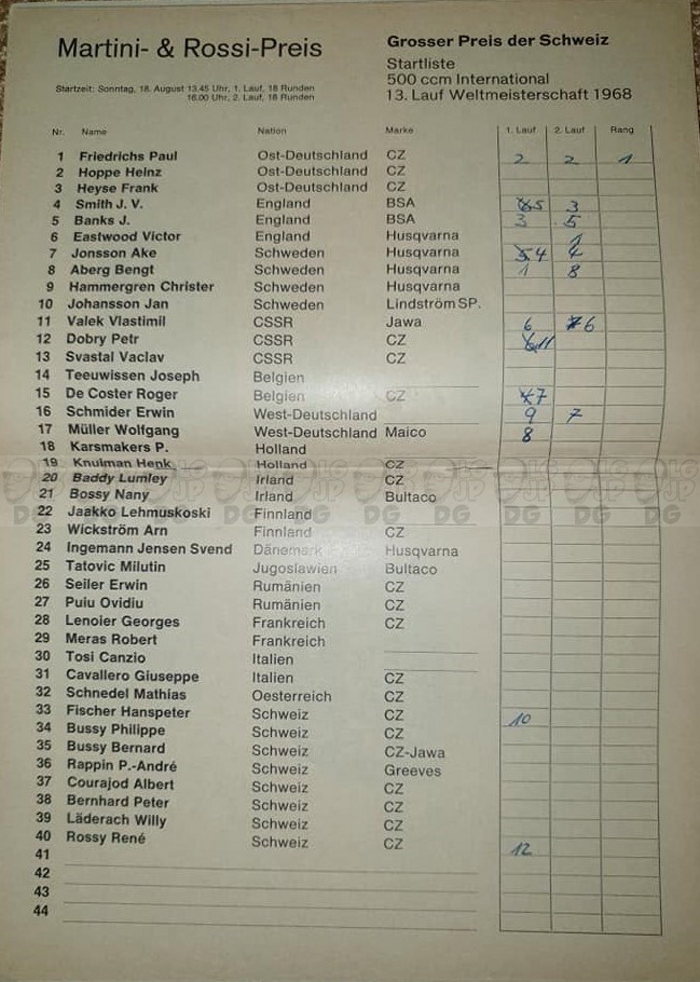 Martini- & Rossi-Preis
Grosser Preis der Schweiz
Startliste
500 ccm International
13. Lauf Weltmeisterschaft 1968
Startzeit: Sonntag, 18. August 13.45 Uhr, 1. Lauf, 18 Runden
16.00 Uhr, 2. Lauf, 18 Runden
Nr. Name Nation Marke 1. Lauf 2. Lauf Rang
1 Friedrichs Paul Ost-Deutschland CZ 2 2 1
2 Hoppe Heinz Ost-Deutschland CZ
3 Heyse Frank Ost-Deutschland CZ
4 Smith J. V. England BSA 5 3
5 Banks J. England BSA 3 5
6 Eastwood Victor England Husqvarna 1
7 Jonsson Ake Schweden Husqvarna 4 4
8 Aberg Bengt Schweden Husqvarna 1 8
9 Hammergren Christer Schweden Husqvarna
10 Johansson Jan Schweden Lindström SP.
11 Valek Vlastimil CSSR Jawa 6 6
12 Dobry Petr CSSR CZ 11
13 Svastal Vaclav CSSR CZ
14 Teeuwissen Joseph Belgien
15 De Coster Roger Belgien CZ 7
16 Schmider Erwin West-Deutschland 9 7
17 Müller Wolfgang West-Deutschland Maico 8
18 Karsmakers P. Holland
19 Knuiman Henk Holland CZ
20 Baddy Lumley Irland CZ
21 Bossy Nany Irland Bultaco
22 Jaakko Lehmuskoski Finnland
23 Wickström Arn Finnland CZ
24 Ingemann Jensen Svend Dänemark Husqvarna
25 Tatovic Milutin Jugoslawien Bultaco
26 Seiler Erwin Rumänien CZ
27 Puiu Ovidiu Rumänien CZ
28 Lenoier Georges Frankreich CZ
29 Meras Robert Frankreich
30 Tosi Canzio Italien
31 Cavallero Giuseppe Italien CZ
32 Schnedel Mathias Oesterreich CZ
33 Fischer Hanspeter Schweiz CZ 10
34 Bussy Philippe Schweiz CZ
35 Bussy Bernard Schweiz CZ-Jawa
36 Rappin P.-André Schweiz Greeves
37 Courajod Albert Schweiz CZ
38 Bernhard Peter Schweiz CZ
39 Läderach Willy Schweiz CZ
40 Rossy René Schweiz CZ 12
41
42
43
44